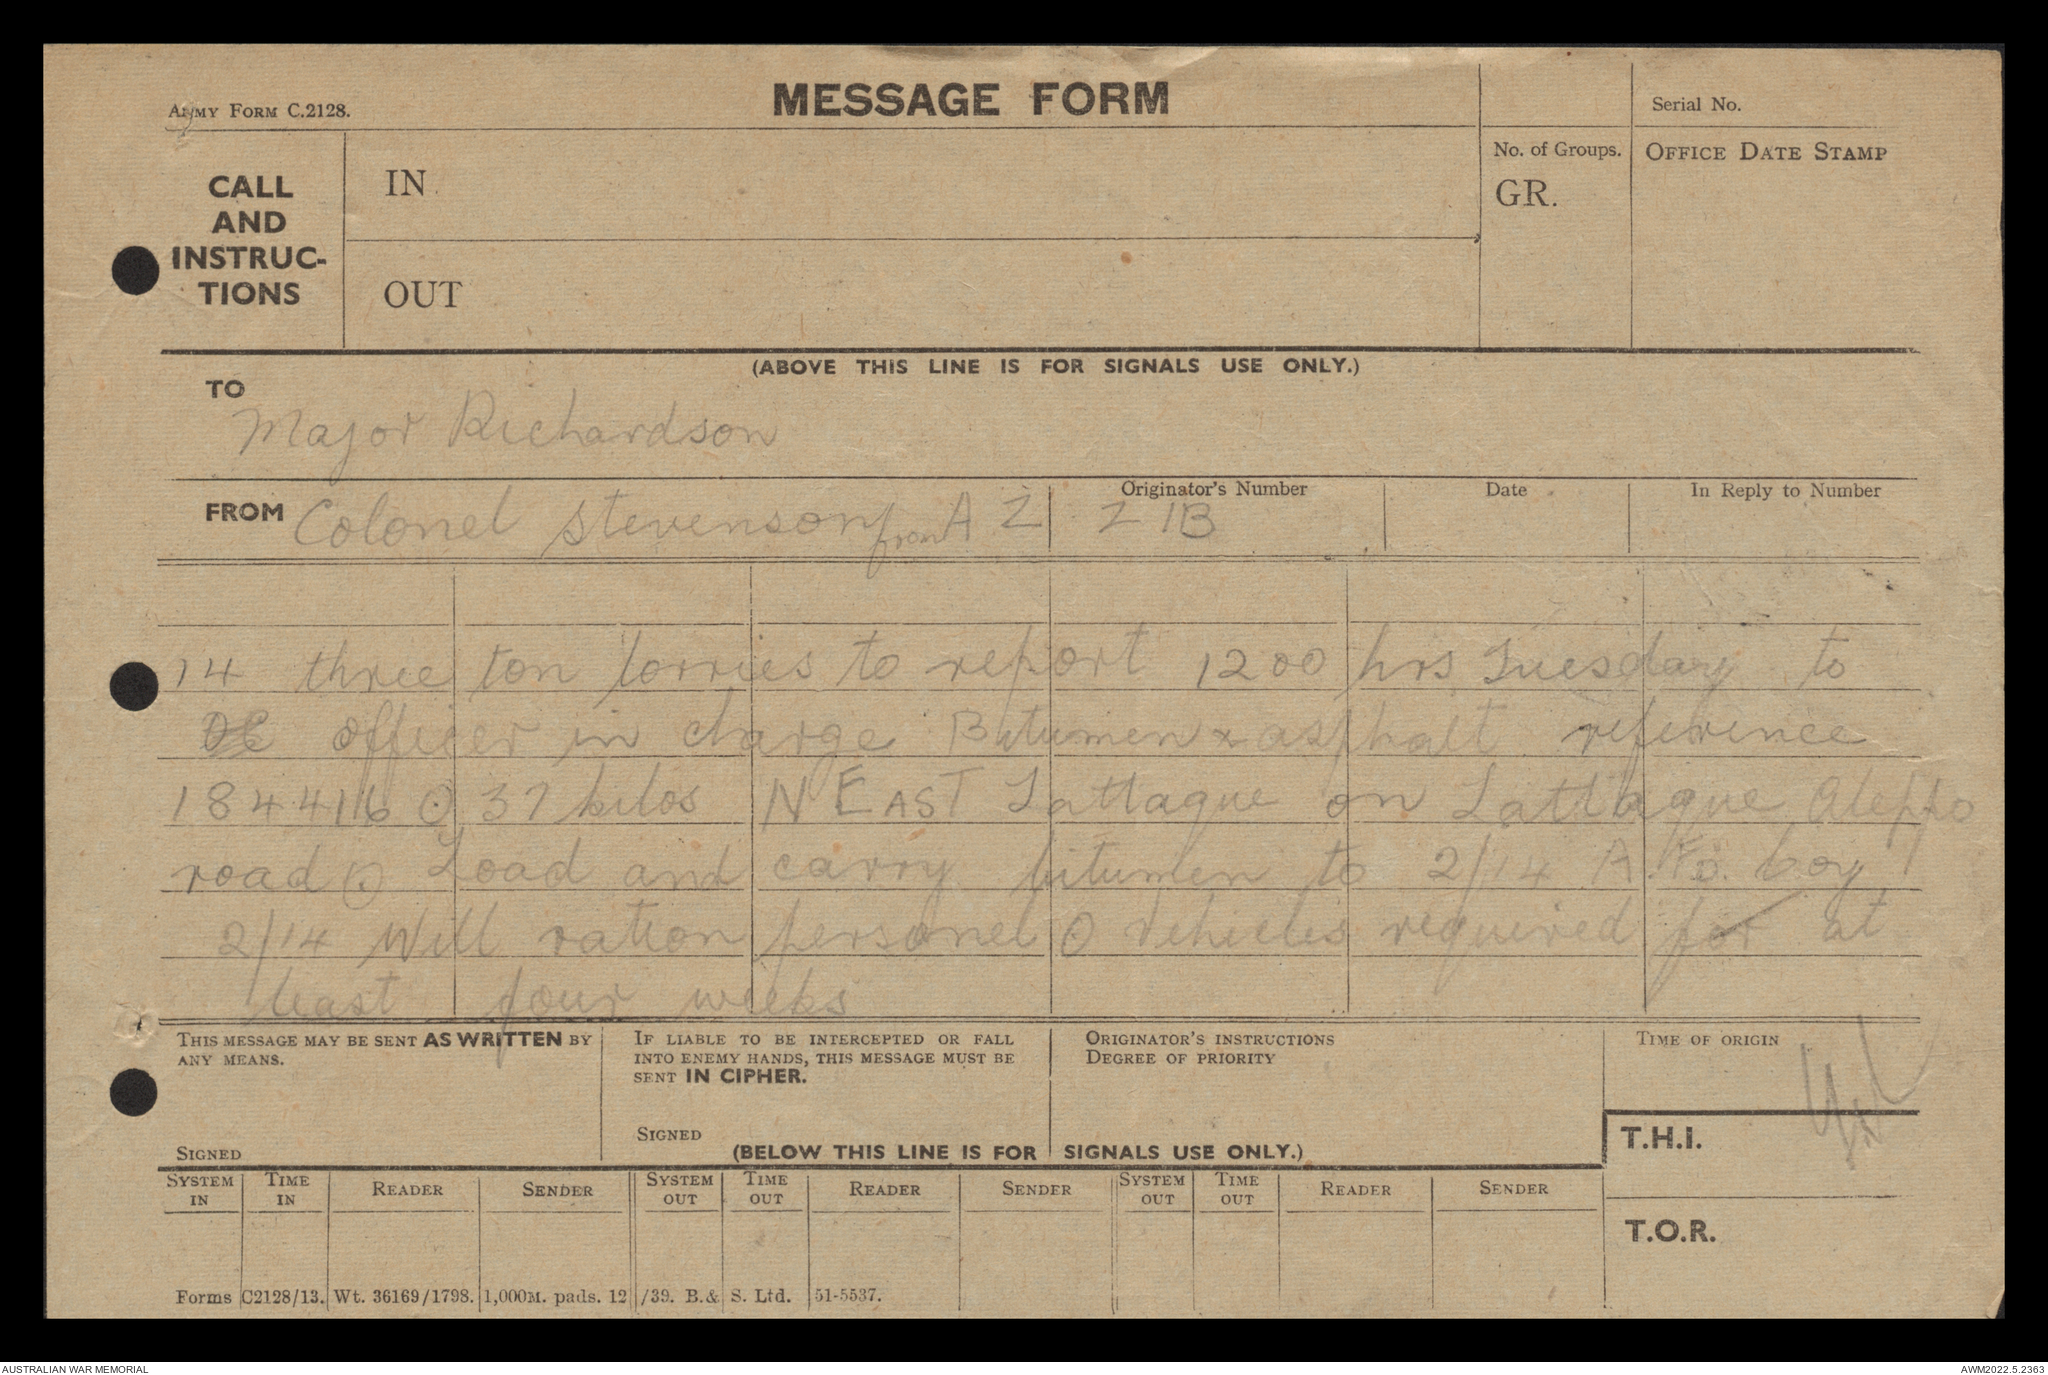 ARMY FORM C.2128.
MESSAGE FORM
Serial No.
CALL
AND
INSTRUC-
TIONS
IN
OUT
No. of Groups.
GR.
OFFICE DATE STAMP
(ABOVE THIS LINE IS FOR SIGNALS USE ONLY.)
TO
Major Richardson
FROM Colonel Stevenson from A Z
Originator's Number
Z 1B
Date
In Reply to Number
14 three ton lorries to report 1200 hrs Tuesday to
officer in charge Bitumen x asphalt reference
184416 ⊙ 37 kilos N EAST Lattaque on Lattaque Aleppo
road ⊙ Load and carry bitumen to 2/14 A. Fd. Coy
2/14 Will ration personel ⊙ Vehicles required for at
least four weeks
THIS MESSAGE MAY BE SENT AS WRITTEN BY
ANY MEANS.
SIGNED
IF LIABLE TO BE INTERCEPTED OR FALL
INTO ENEMY HANDS, THIS MESSAGE MUST BE
SENT IN CIPHER.
SIGNED
ORIGINATOR'S INSTRUCTIONS
DEGREE OF PRIORITY
TIME OF ORIGIN
(BELOW THIS LINE IS FOR SIGNALS USE ONLY.)
T.H.I.
SYSTEM IN
TIME IN
READER
SENDER
SYSTEM OUT
TIME OUT
READER
SENDER
SYSTEM OUT
TIME OUT
READER
SENDER
T.O.R.
Forms C2128/13. Wt. 36169/1798. 1,000M. pads. 12/39. B.& S. Ltd. 51-5537.
AUSTRALIAN WAR MEMORIAL
AWM2022.5.2363